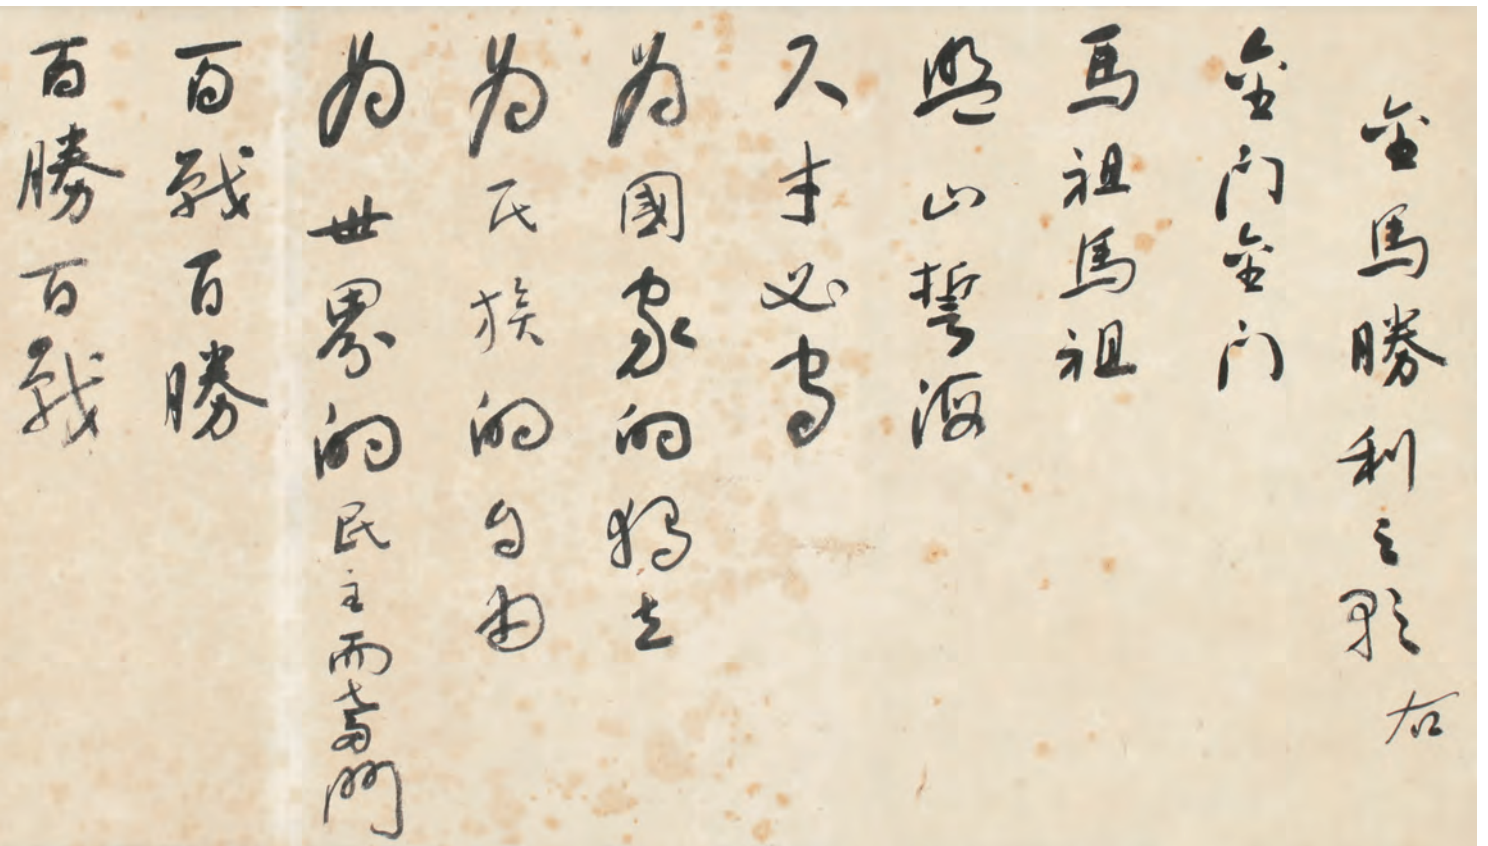 金馬勝利之歌 右
金門金門
馬祖馬祖
盟山誓海
尺寸必守
為國家的獨立
為民族的自由
為世界的民主而奮鬥
百戰百勝
百勝百戰